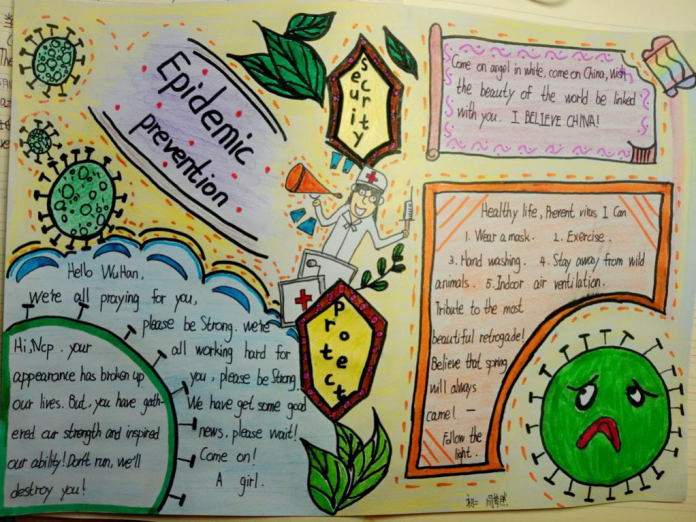 Epidemic
prevention
Security
Come on angel in white, come on China, wish
the beauty of the world be linked
with you. I BELIEVE CHINA!
Hello WuHan,
we're all praying for you,
please be strong. we're
all working hard for
you, please be Strong.
We have get some good
news, please wait!
Come on!
A girl.
Hi, Ncp. your
appearance has broken up
our lives. But, you have gath-
ered our strength and inspired
our ability! Don't run, we'll
destroy you!
Protect
Healthy life, Prevent virus I Can
1. Wear a mask. 2. Exercise.
3. Hand washing. 4. Stay away from wild
animals. 5. Indoor air ventilation.
Tribute to the most
beautiful retrograde!
Believe that spring
will always
came! —
Follow the
light.